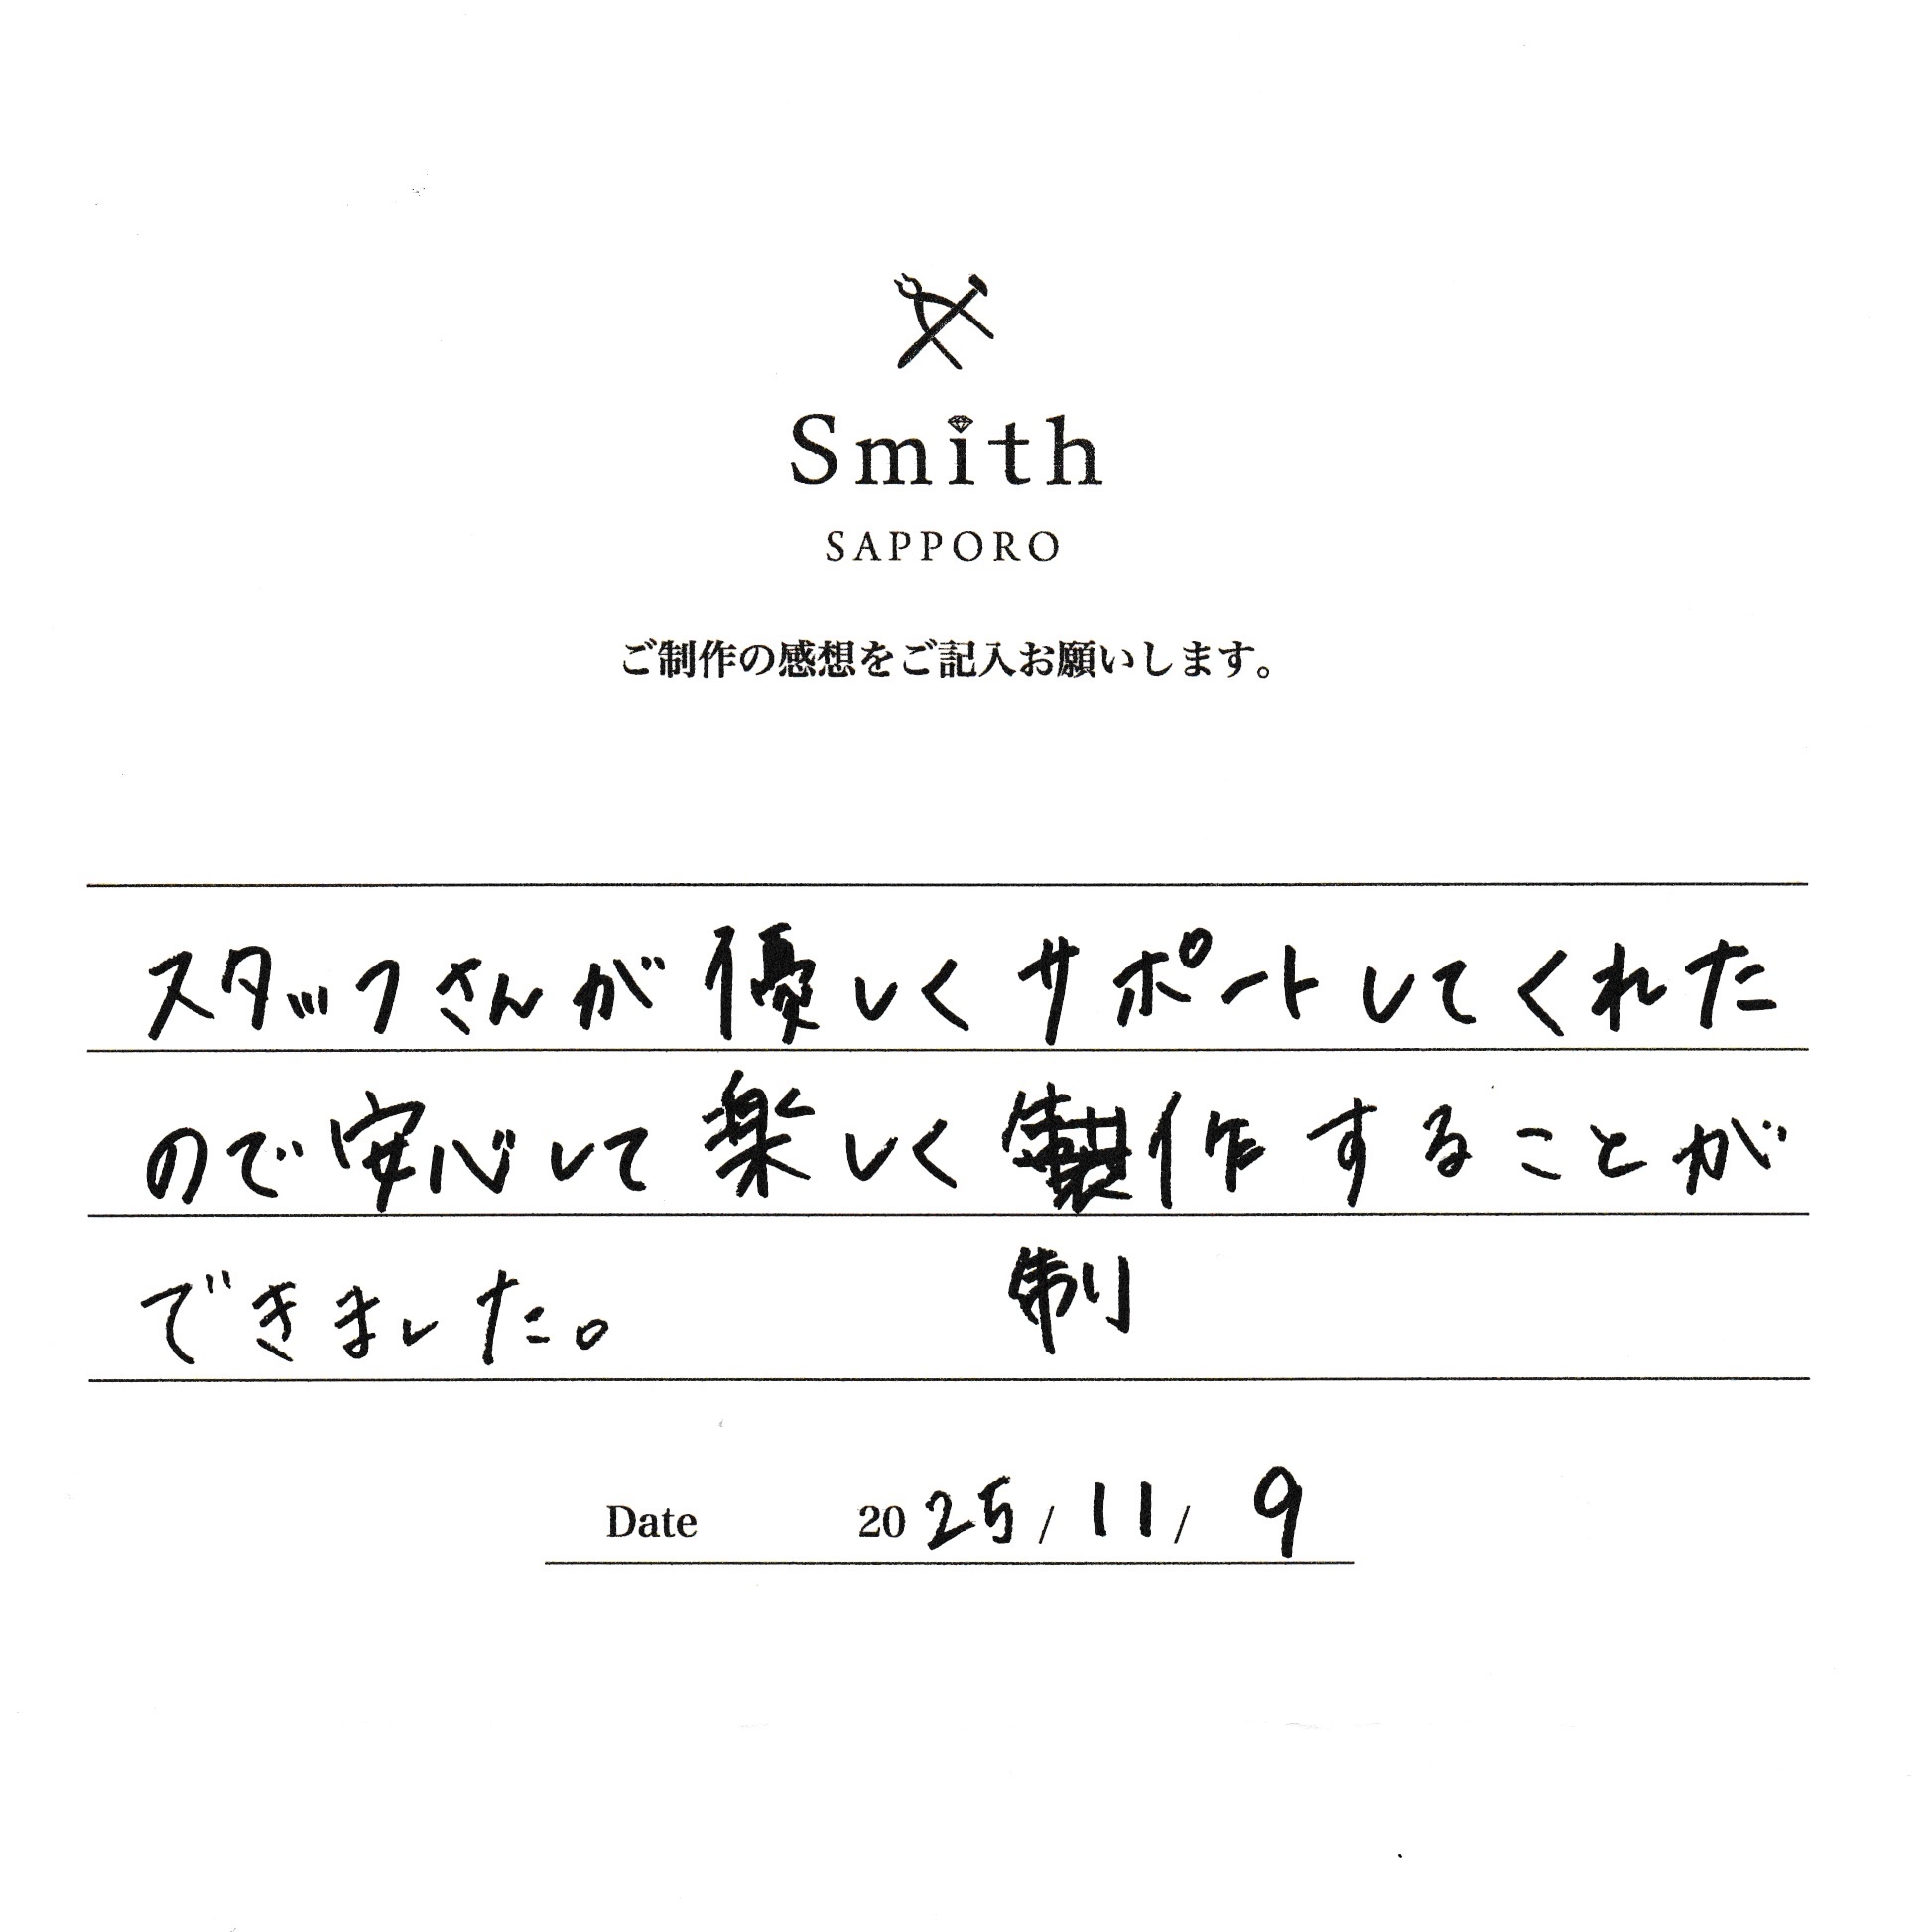 Smith
SAPPORO
ご制作の感想をご記入お願いします。
スタッフさんが優しくサポートしてくれた
ので安心して楽しく製作することが
できました。 制
Date 2025/11/9